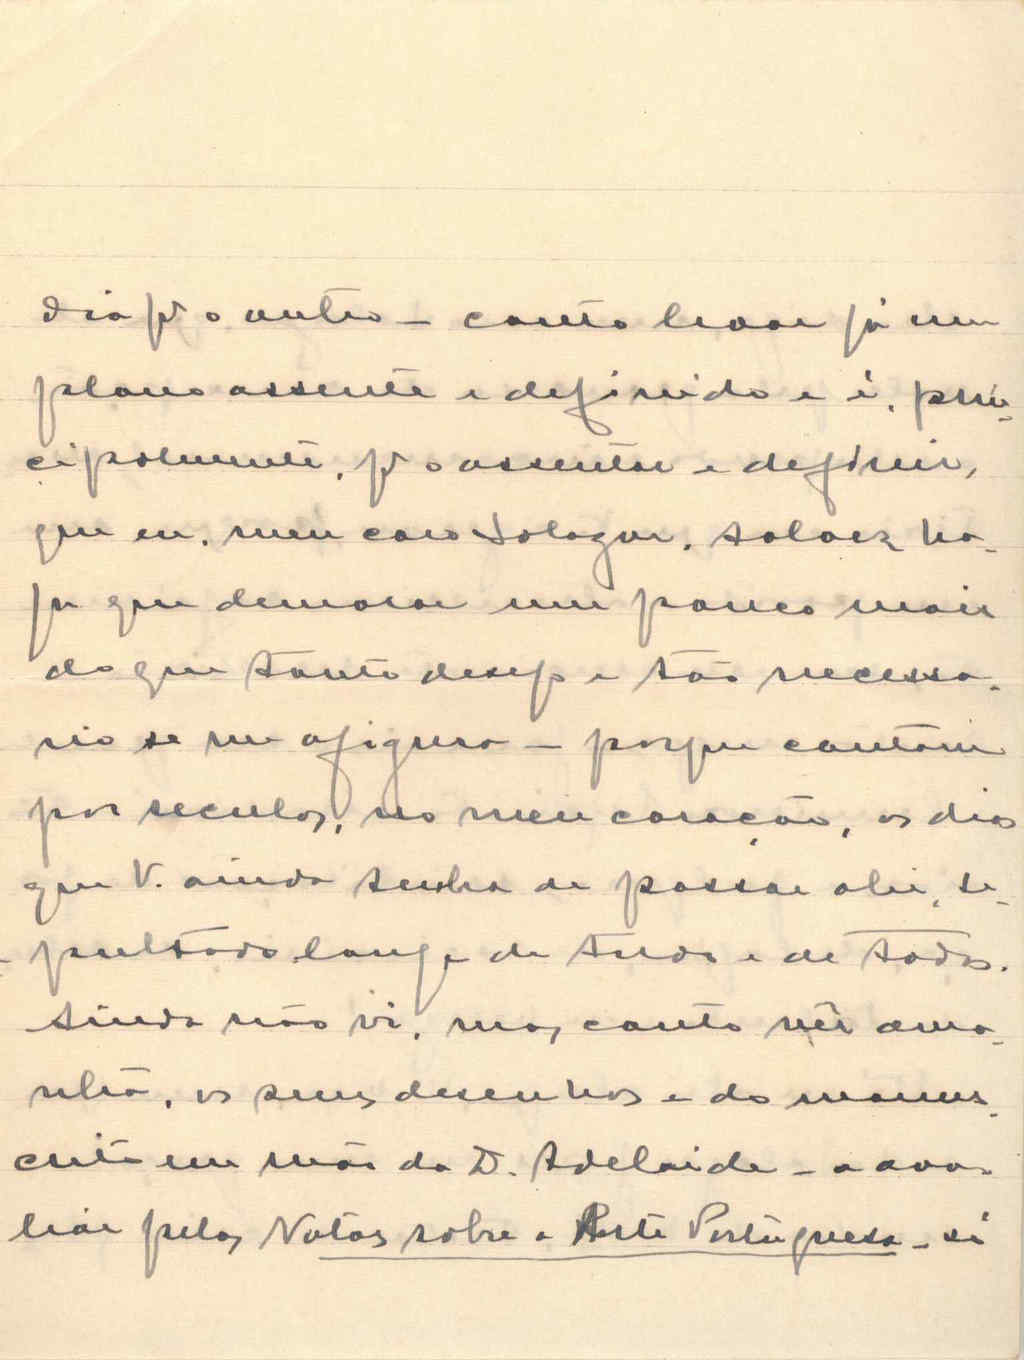 dia p.ª o outro — conto levar já um
plano assente e definido e é, prin-
cipalmente, p.ª o assentar e definir,
que eu, meu caro Salazar, talvez ha-
ja que demorar um pouco mais
do que tanto desejo e tão necessa-
rio se me afigura — porque contam
por seculos, no meu coração, os dias
que V. ainda tenha de passar ali, se-
pultado longe de tudo e de todos.
Ainda não vi, mas conto vêr ama-
nhã, os seus desenhos e do manus-
crito em mão da D. Adelaide — a ava-
liar pelas Notas sobre a Arte Portuguesa — si